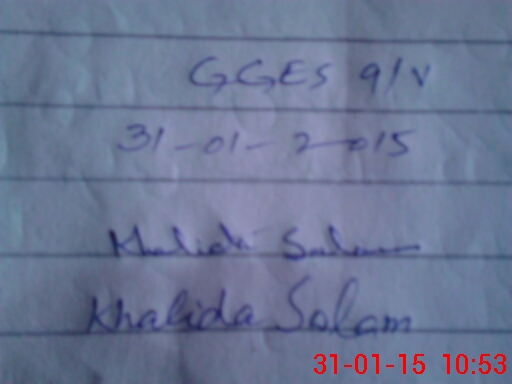 GGES 9/V
31-01-2015
Khalida Salam
Khalida Salam
31-01-15 10:53